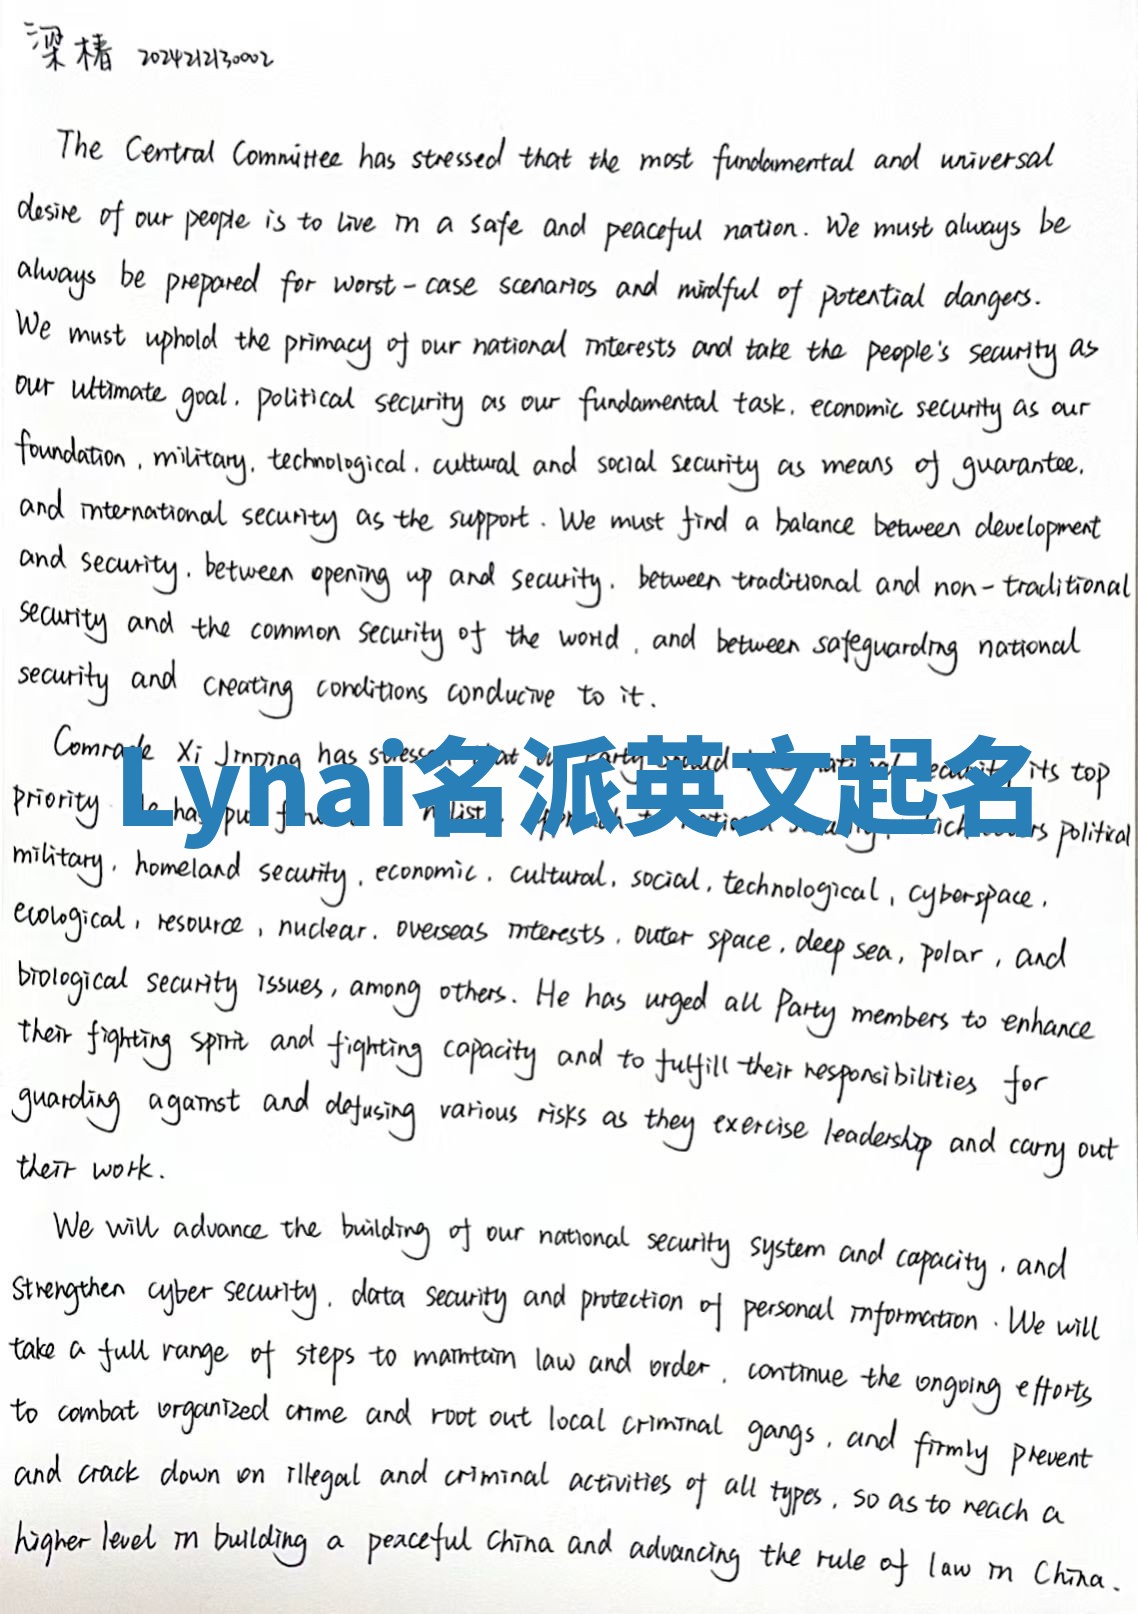 梁椿 2024212130002
The Central Committee has stressed that the most fundamental and universal
desire of our people is to live in a safe and peaceful nation. We must always be
always be prepared for worst-case scenarios and mindful of potential dangers.
We must uphold the primacy of our national interests and take the people's security as
our ultimate goal, political security as our fundamental task, economic security as our
foundation, military, technological, cultural and social security as means of guarantee,
and international security as the support. We must find a balance between development
and security, between opening up and security, between traditional and non-traditional
security and the common security of the world, and between safeguarding national
security and creating conditions conducive to it.
Comrade Xi Jinping has stressed that its top
Lynai名派英文起名
priority political
military, homeland security, economic, cultural, social, technological, cyberspace,
ecological, resource, nuclear, overseas interests, outer space, deep sea, polar, and
biological security issues, among others. He has urged all Party members to enhance
their fighting spirit and fighting capacity and to fulfill their responsibilities for
guarding against and defusing various risks as they exercise leadership and carry out
their work.
We will advance the building of our national security system and capacity, and
strengthen cyber security, data security and protection of personal information. We will
take a full range of steps to maintain law and order, continue the ongoing efforts
to combat organized crime and root out local criminal gangs, and firmly prevent
and crack down on illegal and criminal activities of all types, so as to reach a
higher level in building a peaceful China and advancing the rule of law in China.